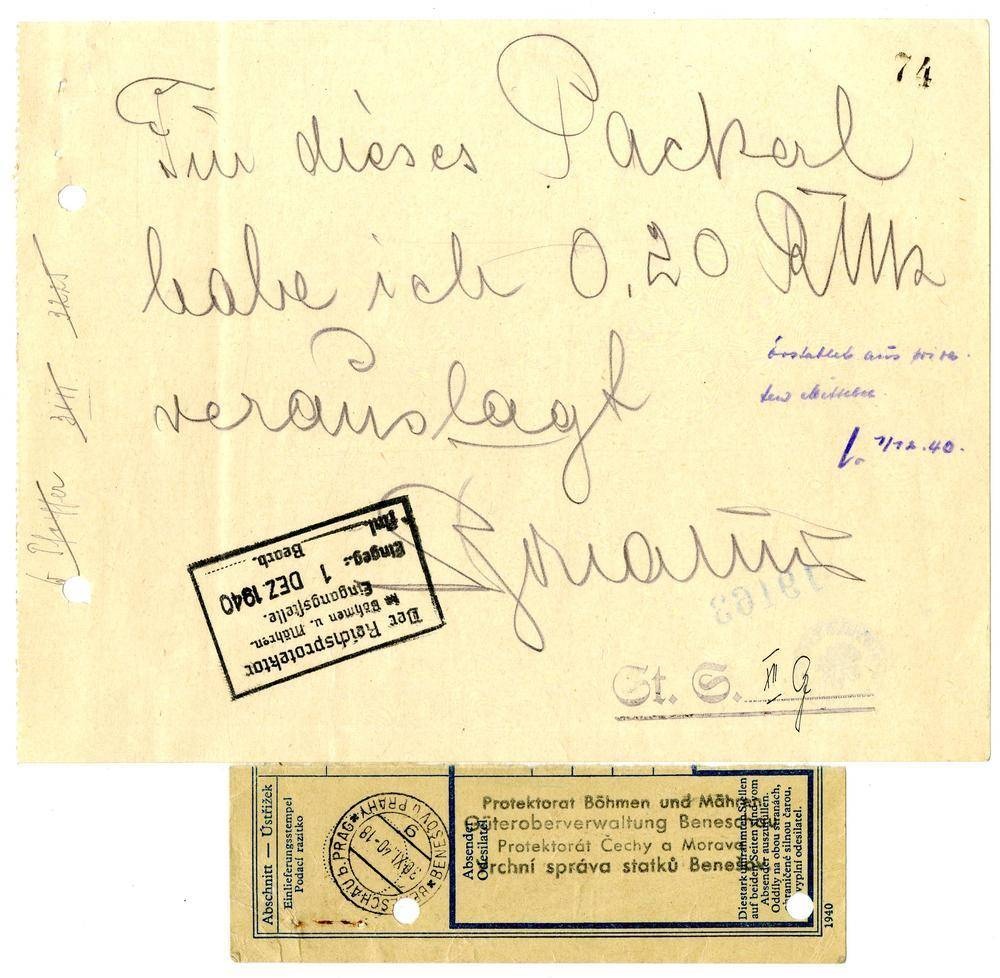 74
Für dieses Packerl
habe ich 0,20 RMk
verauslagt
aus
7/12.40.
Der Reichsprotektor
in Böhmen u. Mähren.
Eingangsstelle.
Eingeg.: 1 DEZ. 1940
Anl. Bearb.
19163
St. S. XII
Abschnitt — Ústřižek
Einlieferungsstempel
Podací razítko
BENESCHAU b. PRAG * BENEŠOV u PRAHY *
30.XI.40-18
9
Absender
Odesílatel
Protektorat Böhmen und Mähren
Güteroberverwaltung Beneschau
Protektorát Čechy a Morava
Vrchní správa statků Benešov
Die stark umrahmten Stellen
auf beiden Seiten sind vom
Absender auszufüllen.
Oddíly na obou stranách,
ohraničené silnou čarou,
vyplní odesílatel.
1940